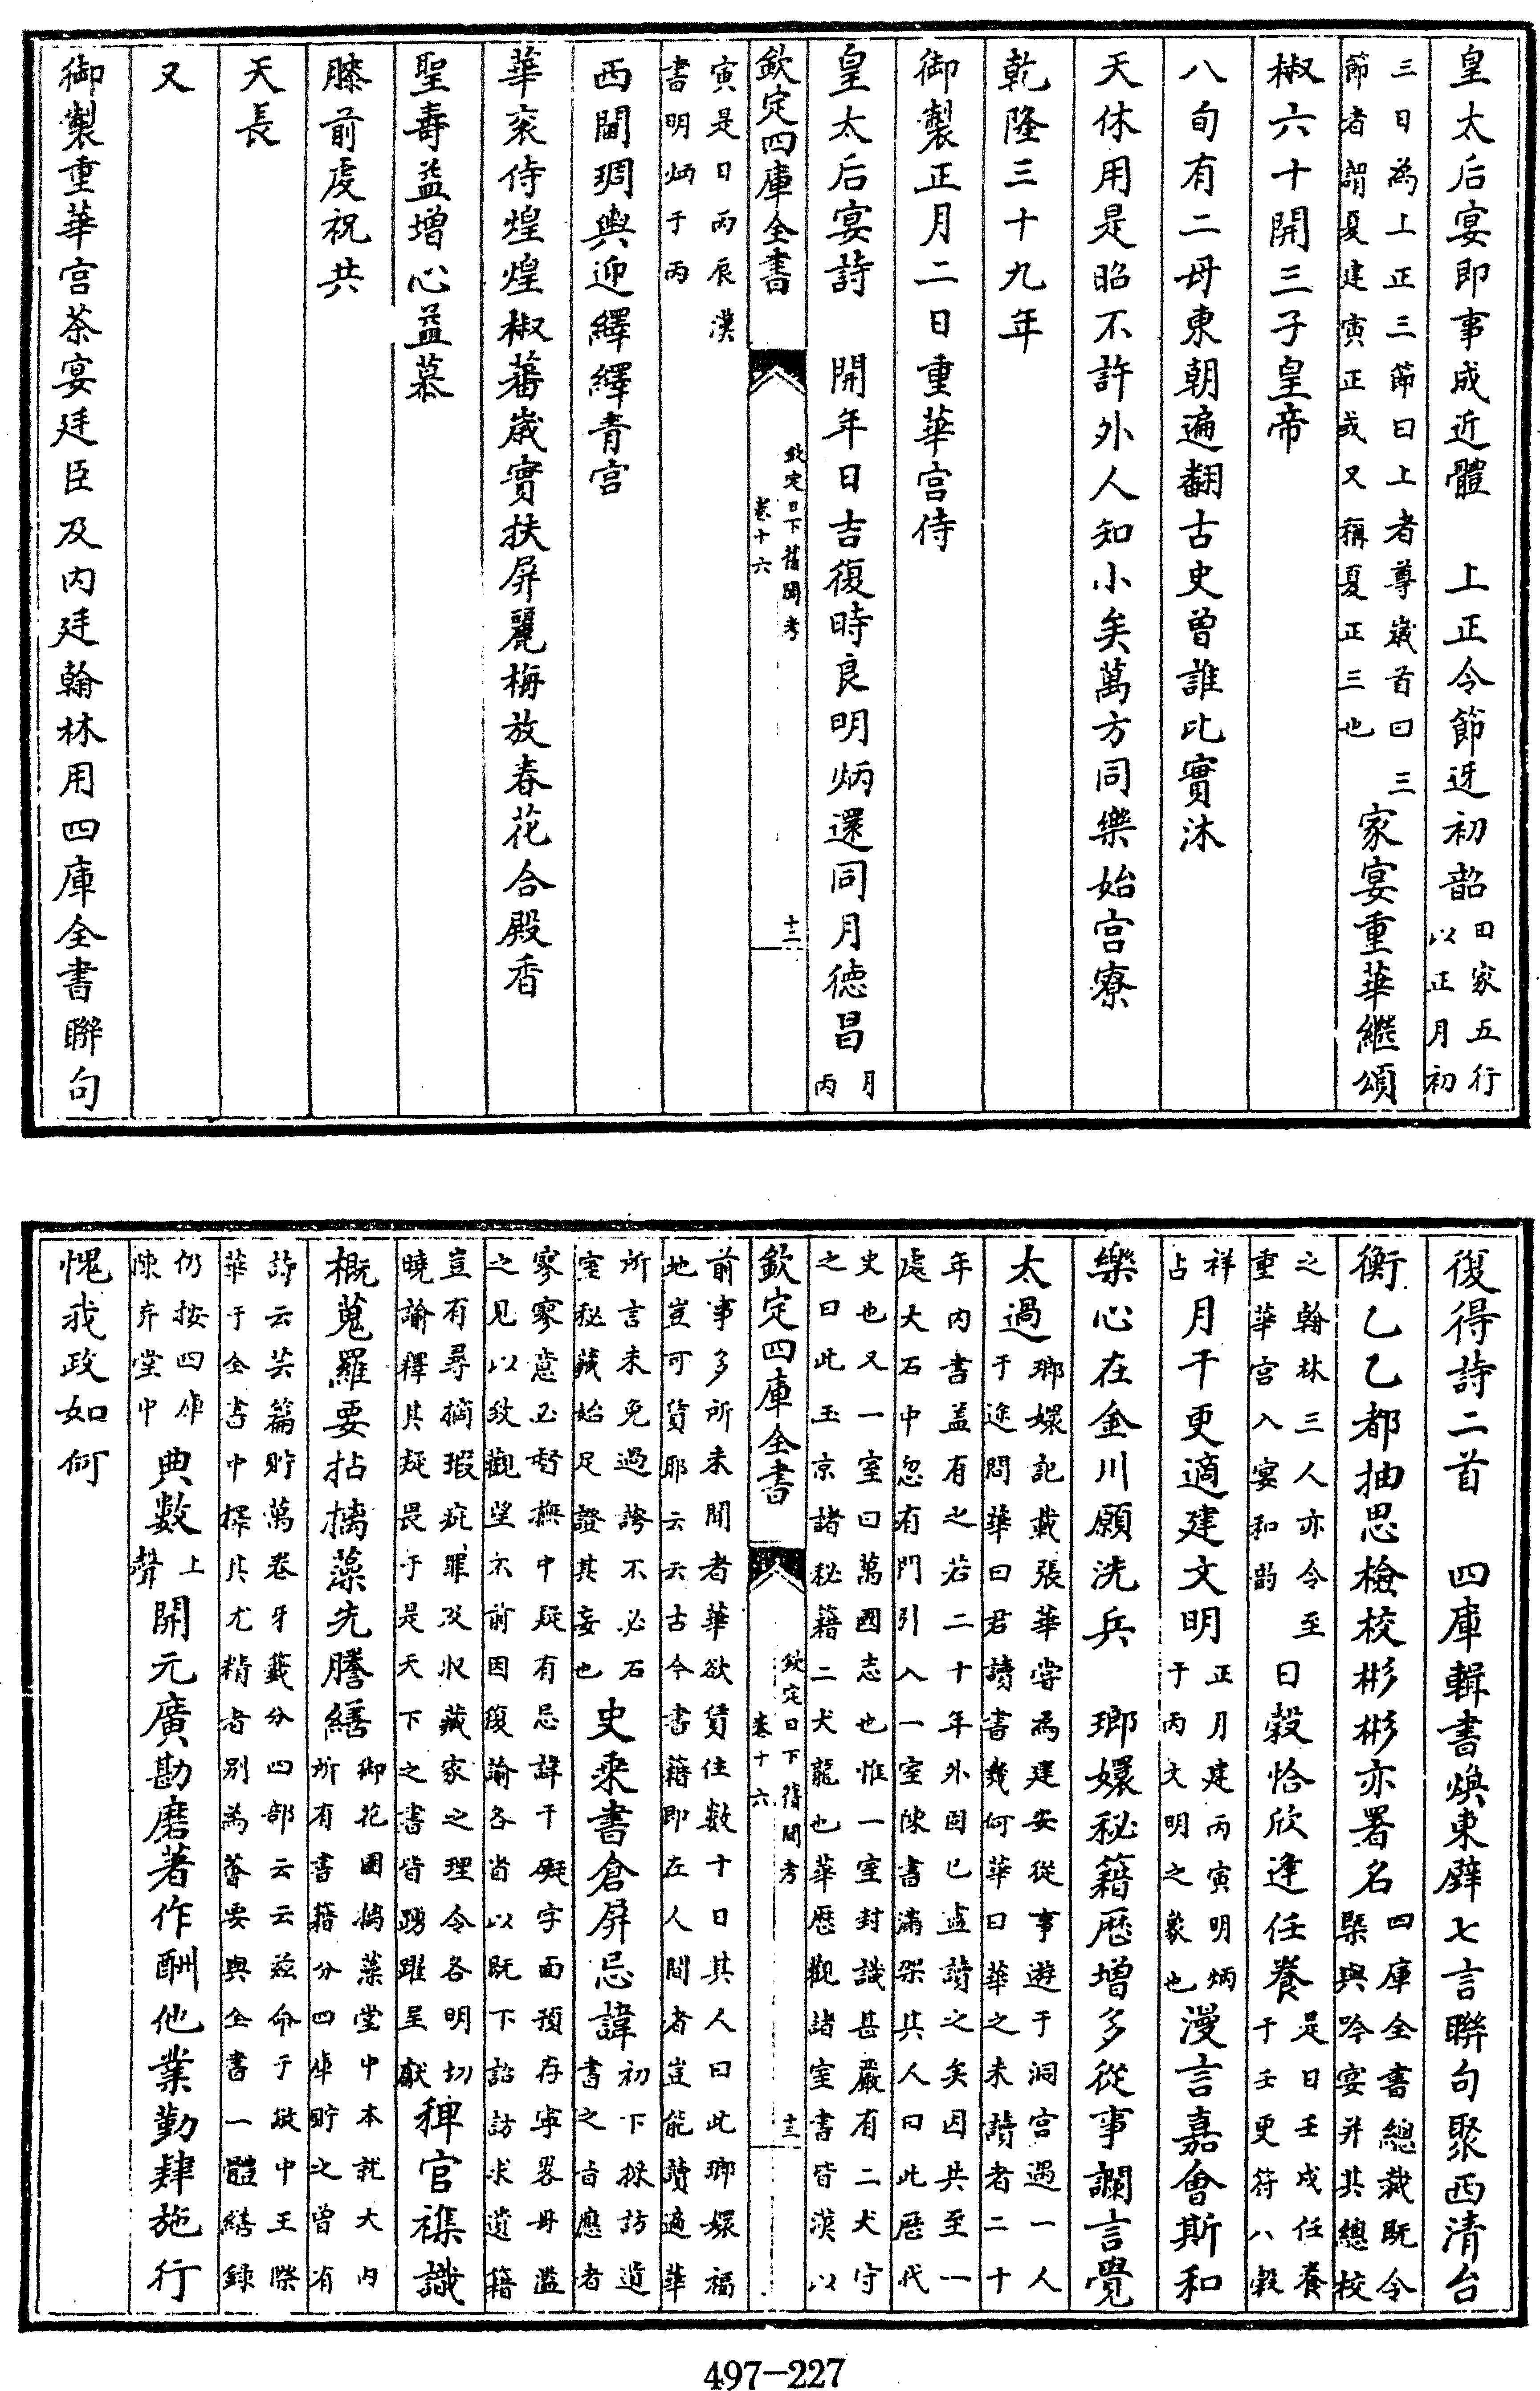 皇太后宴即事成近體　上正令節迓初韶田家五行以正月初
三日為上正三節曰上者尊歲首曰三節者謂夏建寅正或又稱夏正三也家宴重華繼頌
椒六十開三子皇帝
八旬有二母東朝遍翻古史曾誰比實沐
天休用是昭不許外人知小矣萬方同樂始宫寮
乾隆三十九年
御製正月二日重華宫侍
皇太后宴詩　開年日吉復時良明炳還同月德昌月丙
欽定四庫全書　欽定日下舊聞考　卷十六　十二
寅是日丙辰漢書明炳于丙
西閫琱輿迎繹繹青宫
華衮侍煌煌椒蕃歲實扶屏麗梅放春花合殿香
聖壽益增心益慕
膝前虔祝共
天長
又
御製重華宫茶宴廷臣及内廷翰林用四庫全書聯句
復得詩二首　四庫輯書煥東壁七言聯句聚西清台
衡乙乙都抽思檢校彬彬亦署名四庫全書總裁既令槩與吟宴并其總校
之翰林三人亦令至重華宫入宴和韵日穀恰欣逢任養是日壬戌任養于壬更符八穀
祥占月干更適建文明正月建丙寅明炳于丙文明之象也漫言嘉會斯和
樂心在金川願洗兵　瑯嬛秘籍歷增多從事讕言覺
太過瑯嬛記載張華嘗為建安從事遊于洞宫遇一人于途問華曰君讀書幾何華曰華之未讀者二十
年内書盖有之若二十年外固已盡讀之矣因共至一處大石中忽有門引入一室陳書滿架其人曰此歷代
史也又一室曰萬國志也惟一室封識甚嚴有二犬守之曰此玉京諸秘籍二犬龍也華歷觀諸室書皆漢以
欽定四庫全書　欽定日下舊聞考　卷十六　十三
前事多所未聞者華欲賃住數十日其人曰此瑯嬛福地豈可賃耶云云古今書籍即在人間者豈能讀遍華
所言未免過誇不必石室秘藏始足證其妄也史乘書倉屏忌諱初下採訪遺書之旨應者
寥寥意必督撫中疑有忌諱干礙字面預存寧畧毋濫之見以致觀望不前因復諭各省以既下詔訪求遺籍
豈有尋摘瑕疵罪及收藏家之理令各明切曉諭釋其疑畏于是天下之書皆踴躍呈獻稗官襍識
概蒐羅要拈摛藻先謄繕御花園摛藻堂中本就大内所有書籍分四庫貯之曾有
詩云芸篇貯萬卷牙籤分四部云云兹命于敏中王際華于全書中擇其尤精者別為薈要與全書一體繕錄
仍按四庫陳弆堂中典數上聲開元廣勘磨著作酬他業勤肄施行
愧我政如何
497-227